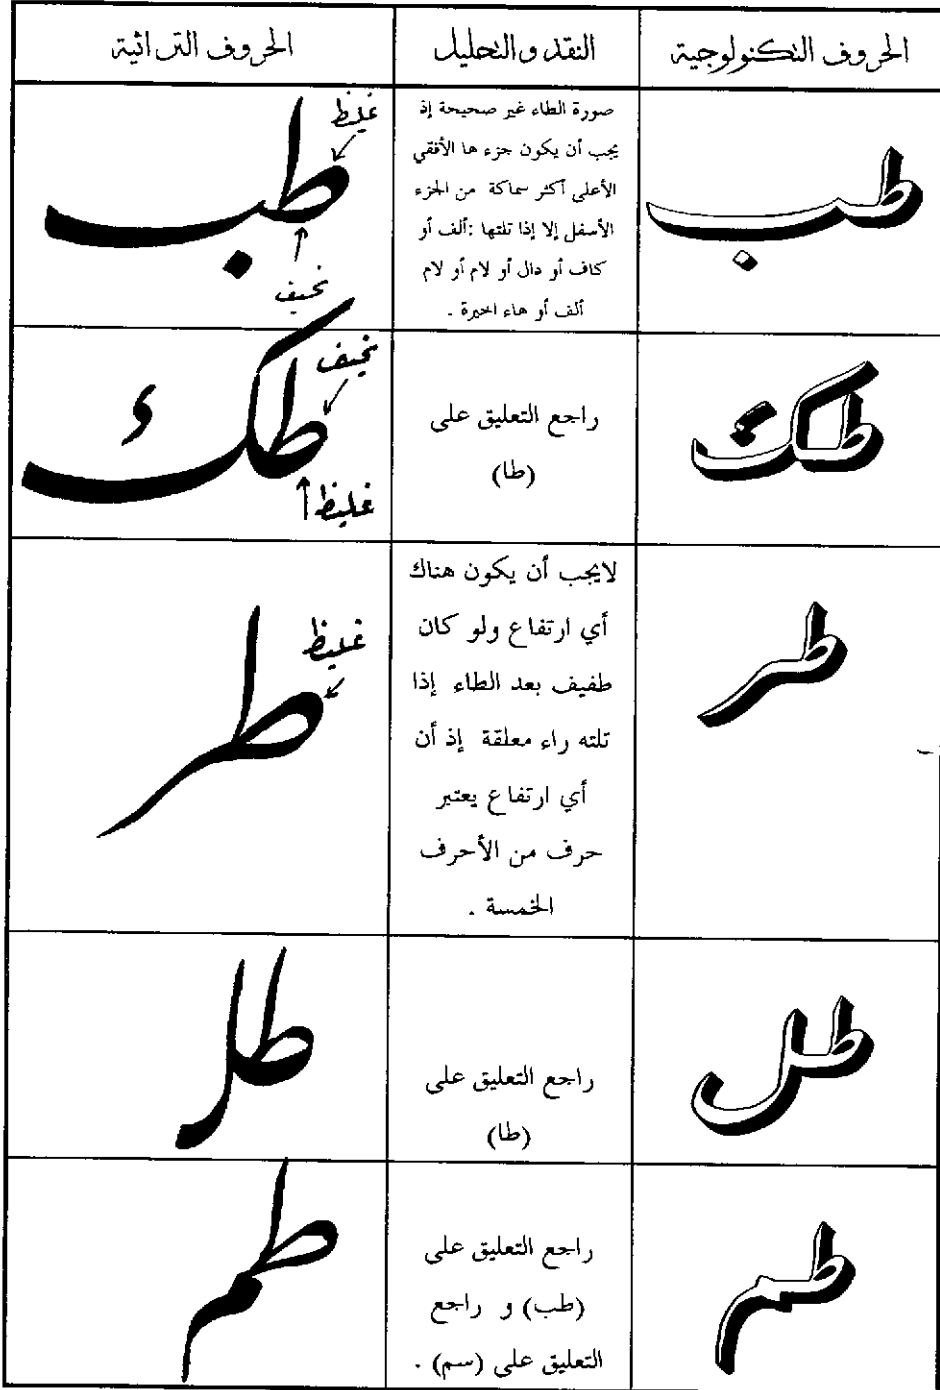 الحروف التكنولوجية
النقد والتحليل
الحروف التراثية
طب
صورة الطاء غير صحيحة إذ
يجب أن يكون جزء ها الأفقي
الأعلى أكثر سماكة من الجزء
الأسفل إلا إذا تلتها : ألف أو
كاف أو دال أو لام أو لام
ألف أو هاء اخيرة .
غليظ
طب
نحيف
طك
راجع التعليق على
(طا)
نحيف
طك
غليظ
طر
لايجب أن يكون هناك
أي ارتفاع ولو كان
طفيف بعد الطاء إذا
تلته راء معلقة إذ أن
أي ارتفاع يعتبر
حرف من الأحرف
الخمسة .
غليظ
طر
طل
راجع التعليق على
(طا)
طل
طم
راجع التعليق على
(طب) و راجع
التعليق على (سم) .
طم